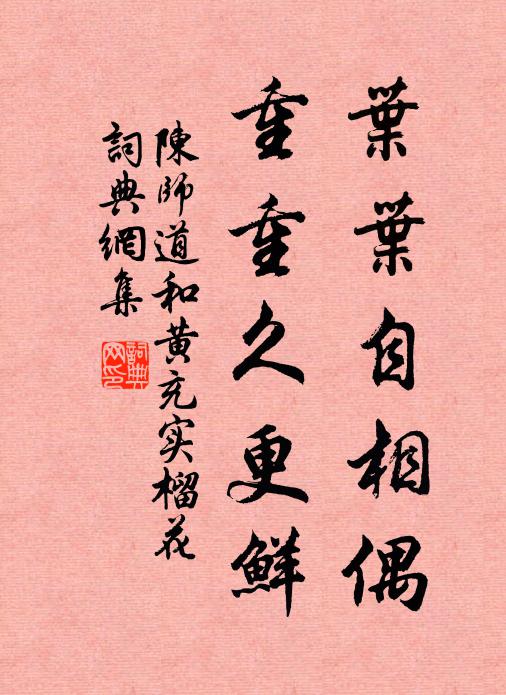 葉葉自相偶
重重久更鮮
陳師道和黄充实榴花
詞典網集
詞典網印